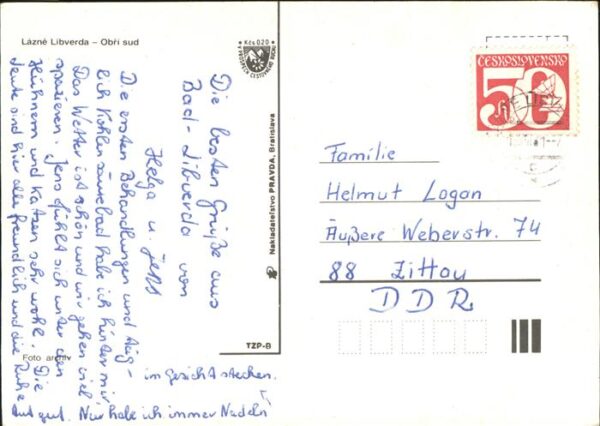 Lázně Libverda – Obří sud
Kčs 0,20
V PROSPĚCH CESTOVNÍHO RUCHU
Die besten Grüße aus
Bad-Libverda von
Helga u. Jens
Die ersten Behandlungen und täg-
lich Kohlensäurebad habe ich hinter mir,
Das Wetter ist schön und wir gehen viel
spazieren. Jens fühlt sich unter den
Hühnern und Katzen sehr wohl. Die
Leute sind hier alle freundlich und die Ruhe
tut gut. Nur habe ich immer Nadeln
im Gesicht stecken.
Nakladatelstvo PRAVDA, Bratislava
TZP-B
Foto archiv
ČESKOSLOVENSKO
50 h
Familie
Helmut Logan
Äußere Weberstr. 74
88 Zittau
DDR